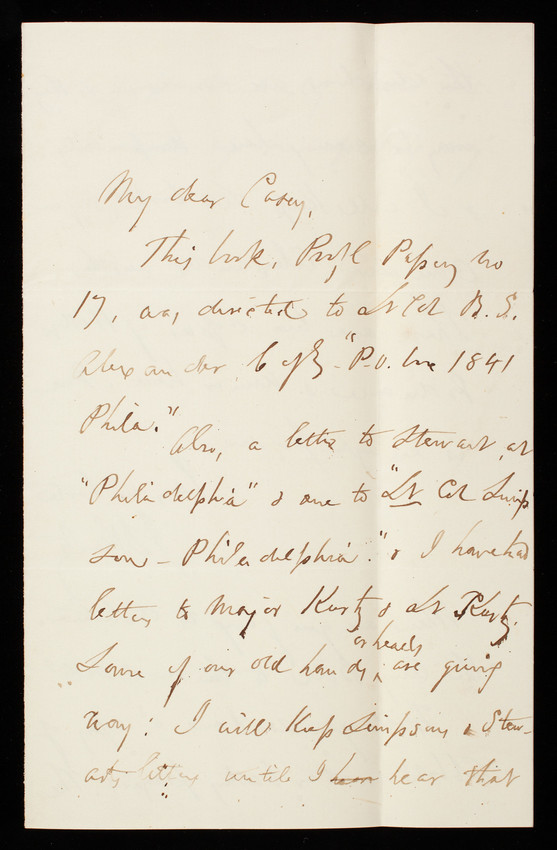 My dear Casey,
This book, Prof'l Papers No
17, was directed to Lt Col B. S.
Alexander, C of E - "P.O. Box 1841
Phila."
Also, a letter to Stewart, at
"Philadelphia" & one to "Lt Col Simp
son - Philadelphia." & I have had
letters to Major Kurtz & Lt Kurtz.
or heads
Some of our old hands, are giving
way! I will keep Simpsons & Stew-
arts letters until I hear that